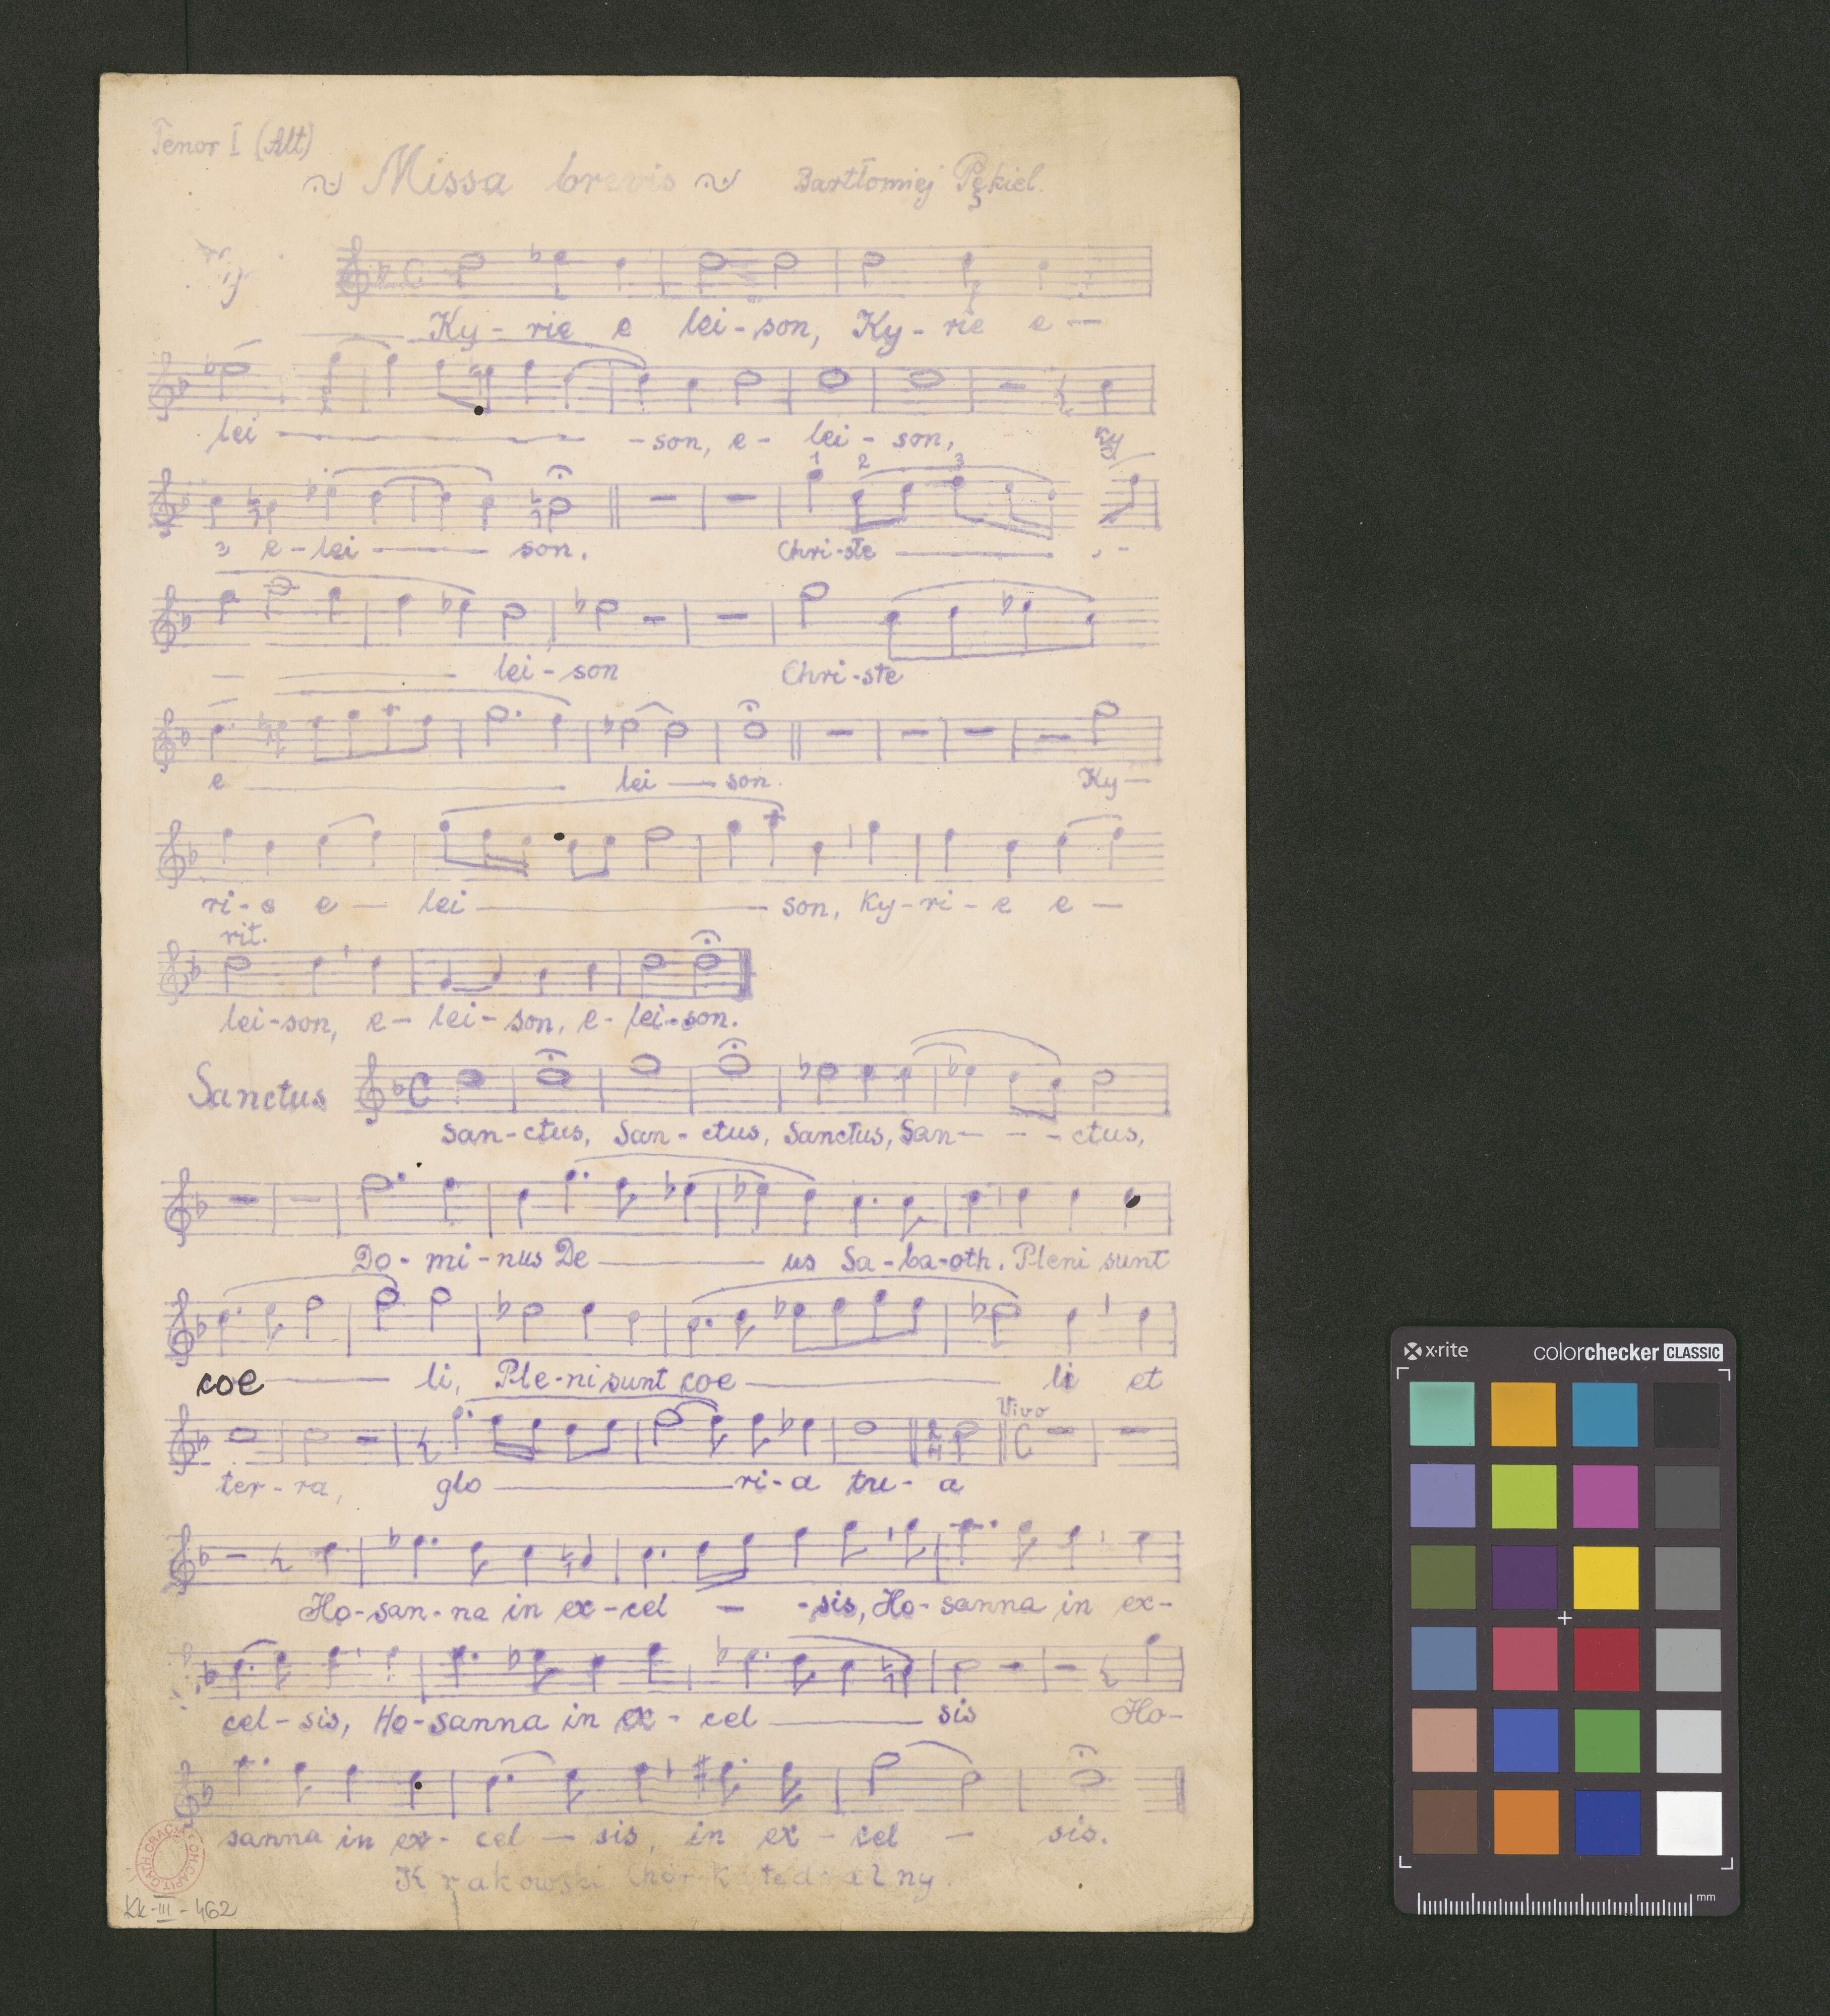 Tenor I (Alt)
Missa brevis Bartłomiej Pękiel.
Ky - rie e lei - son, Ky - rie e —
lei — - son, e - lei - son, Ky
1 2 3
e - lei — son. Chri - ste —
lei - son Chri - ste
e — lei — son. Ky —
ri - e e — lei — son, Ky - ri - e e —
rit.
lei - son, e - lei - son, e - lei - son.
Sanctus
San - ctus, San - ctus, Sanctus, San - - - ctus,
Do - mi - nus De — us Sa - ba - oth. Pleni sunt
coe — li, Ple - ni sunt coe — li et
Vivo
ter - ra, glo — ri - a tu - a
Ho - san - na in ex - cel - - sis, Ho - sanna in ex -
cel - sis, Ho - sanna in ex - cel — sis Ho -
sanna in ex - cel — sis, in ex - cel — sis.
Krakowski Chór Katedralny.
KK-III-462
x·rite colorchecker CLASSIC
mm